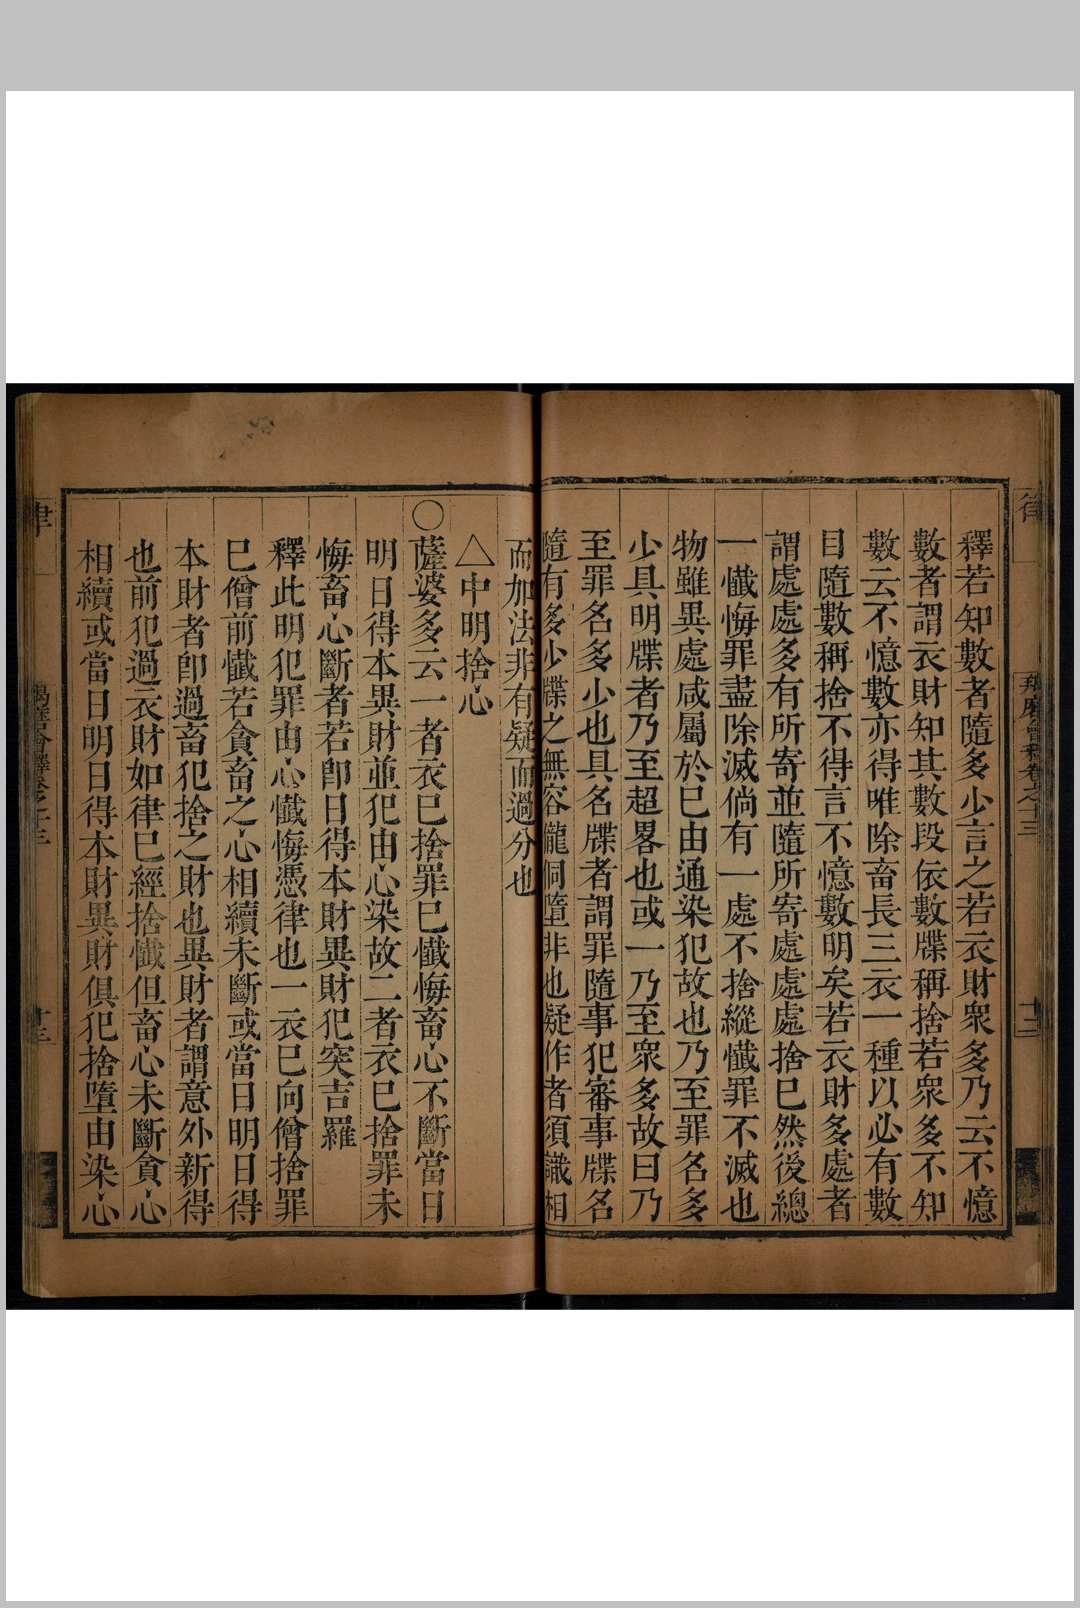 釋若知數者隨多少言之若衣財衆多乃云不憶
數者謂衣財知其數段依數牒稱捨若衆多不知
數云不憶數亦得唯除畜長三衣一種以必有數
目隨數稱捨不得言不憶數明矣若衣財多處者
謂處處多有所寄並隨所寄處處處捨巳然後總
一懺悔罪盡除滅倘有一處不捨縱懺罪不滅也
物雖異處咸屬於巳由通染犯故也乃至罪名多
少具明牒者乃至超畧也或一乃至衆多故曰乃
至罪名多少也具名牒者謂罪隨事犯審事牒名
隨有多少牒之無容儱侗墮非也疑作者須識相
而加法非有疑而過分也
△中明捨心
○薩婆多云一者衣巳捨罪巳懺悔畜心不斷當日
明日得本異財並犯由心染故二者衣巳捨罪未
悔畜心斷者若卽日得本財異財犯突吉羅
釋此明犯罪由心懺悔憑律也一衣巳向僧捨罪
巳僧前懺若貪畜之心相續未斷或當日明日得
本財者卽過畜犯捨之財也異財者謂意外新得
也前犯過衣財如律巳經捨懺但畜心未斷貪心
相續或當日明日得本財異財俱犯捨墮由染心